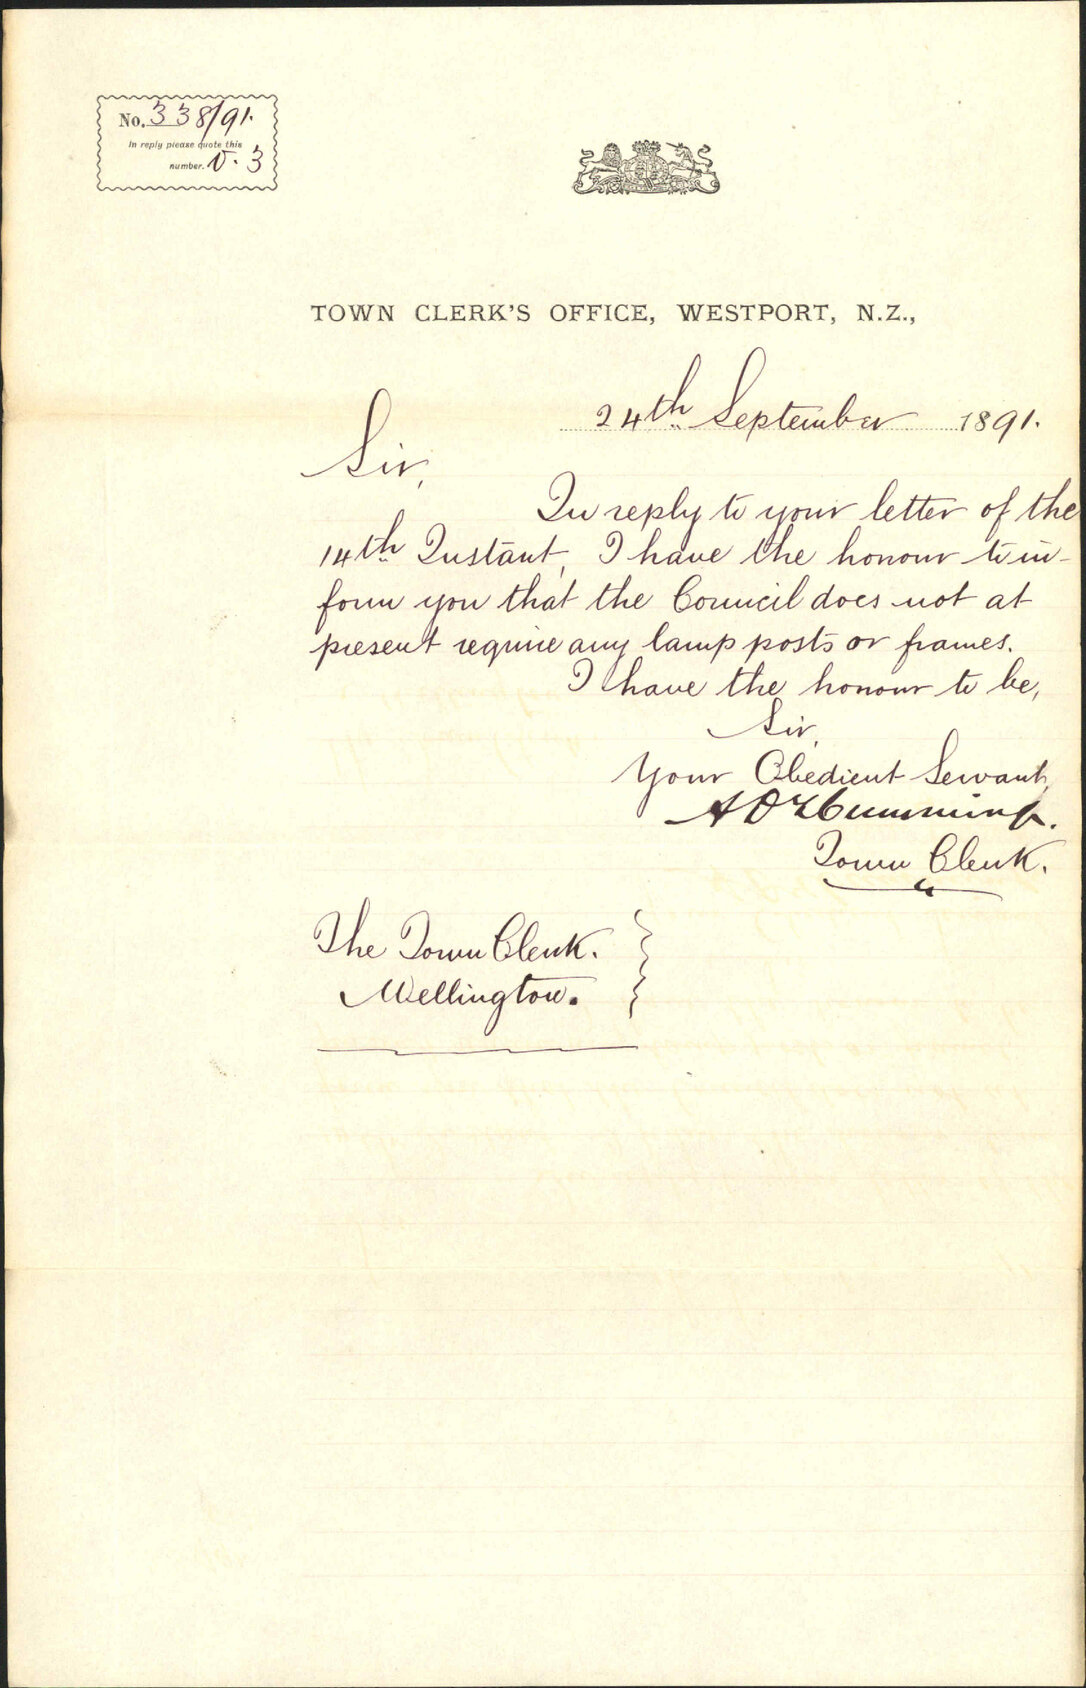 No. 338/91.
In reply please quote this
number. V. 3
TOWN CLERK'S OFFICE, WESTPORT, N.Z.,
24th September 1891.
Sir,
In reply to your letter of the
14th Instant, I have the honour to in-
form you that the Council does not at
present require any lamp posts or frames.
I have the honour to be,
Sir,
Your Obedient Servant,
Cumming.
Town Clerk.
The Town Clerk.
Wellington.